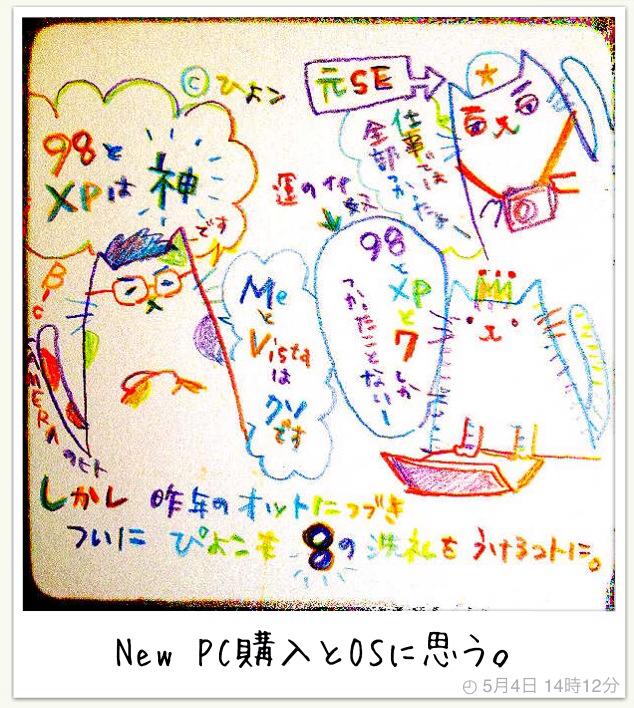 ©ひよン
元SE
98と
XPは神
です
仕事では
全部
つかったよー
運のいい
98
と
XP
と
7しか
つかったことないー
Me
と
Vista
は
クソ
です
BiC
CAMERA
のヒト
しかし 昨年のオットにつづき
ついに ぴよこも 8の洗礼を うけるコトに。
New PC購入とOSに思う。
5月4日 14時12分